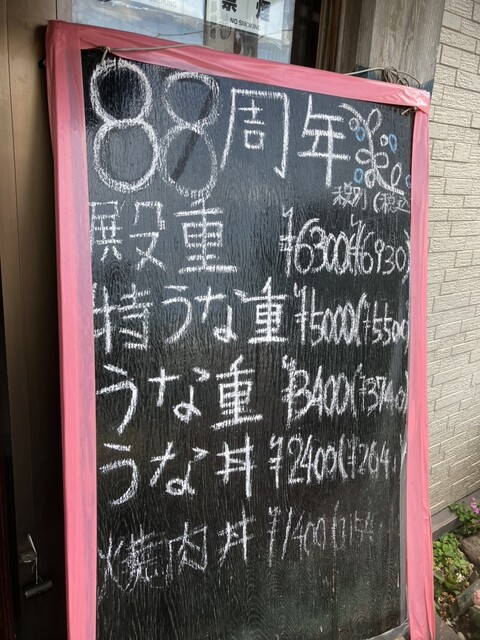 禁煙
NO SMOKING
88周年
税別(税込
殿重 ¥6300(¥6930)
特うな重 ¥5000(¥5500
うな重 ¥3400(¥3740)
うな丼 ¥2400(¥264
焼肉丼 ¥1400(¥154